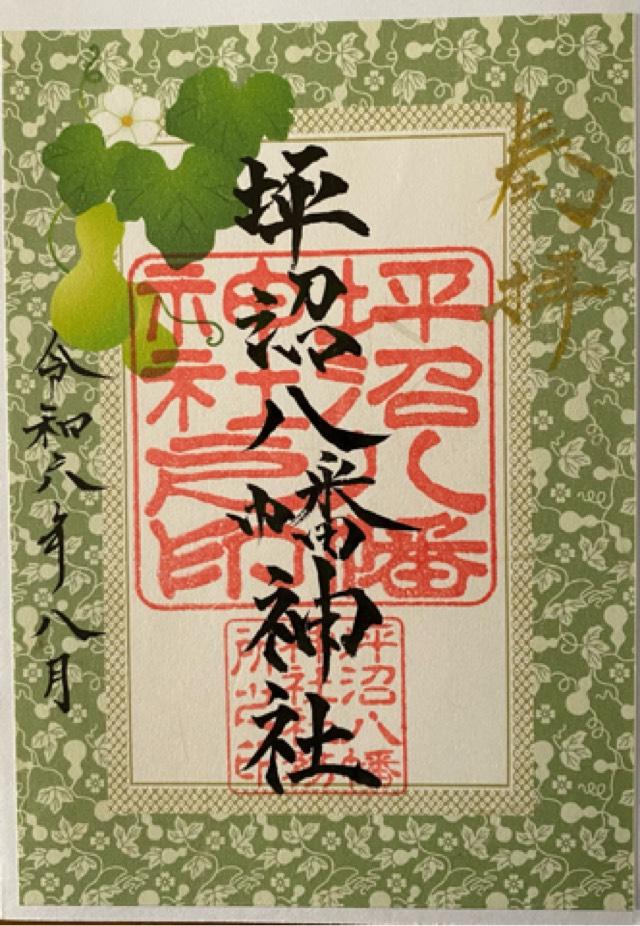 奉拝
坪沼八幡神社
令和六年八月
坪沼八幡
神社之印
坪沼八幡
神社社務
所之印